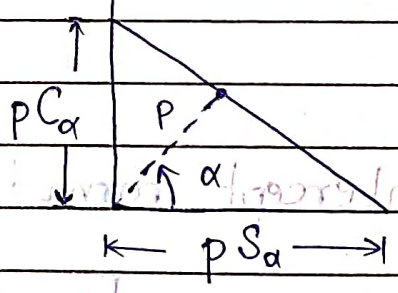 pCα
p
α
p Sα